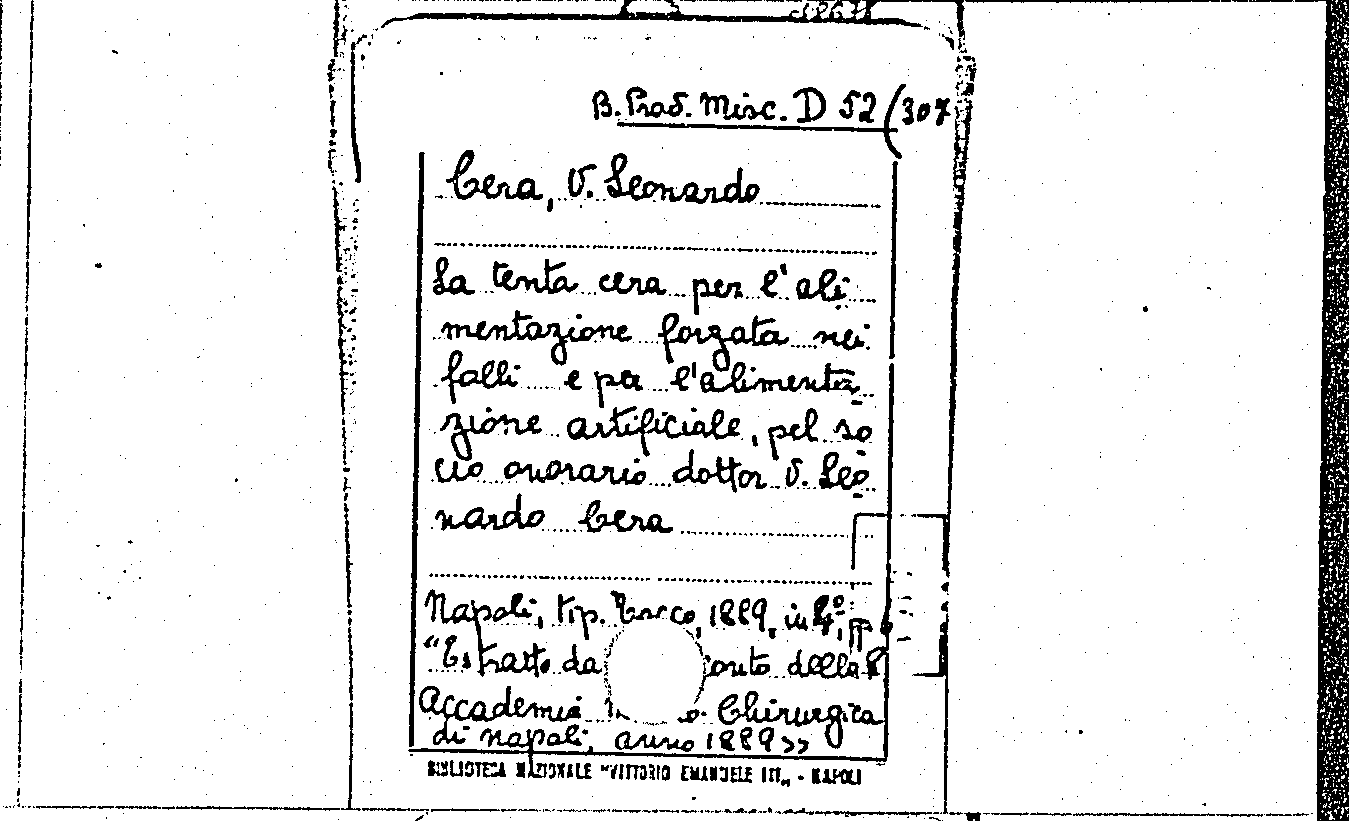 B. Prov. Misc. D 52 (307
Cera, V. Leonardo
La tenta cera per l'ali
mentazione forzata nei
folli e per l'alimenta
zione artificiale, pel so
cio onorario dottor V. Leo
nardo Cera
Napoli, tip. Tocco, 1889, in 4º, pp
"Estratto da conto della R
Accademia Chirurgica
di Napoli, anno 1889»
BIBLIOTECA NAZIONALE "VITTORIO EMANUELE III" - NAPOLI